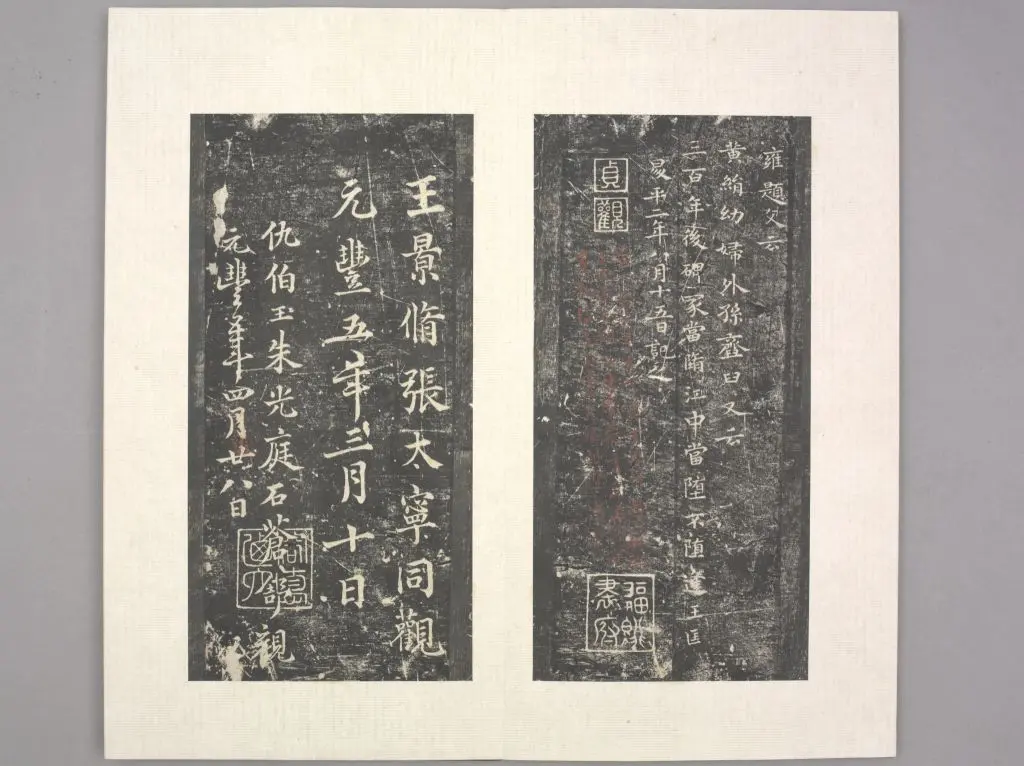 雍題文云
黃絹幼婦外孫虀臼又云
三百年後碑冢當墮江中當墮不墮逢王匡
昇平二年八月十五日記之
貞觀
王景脩張太寧同觀
元豐五年三月十日
仇伯玉朱光庭石蒼舒觀
元豐五年四月廿八日